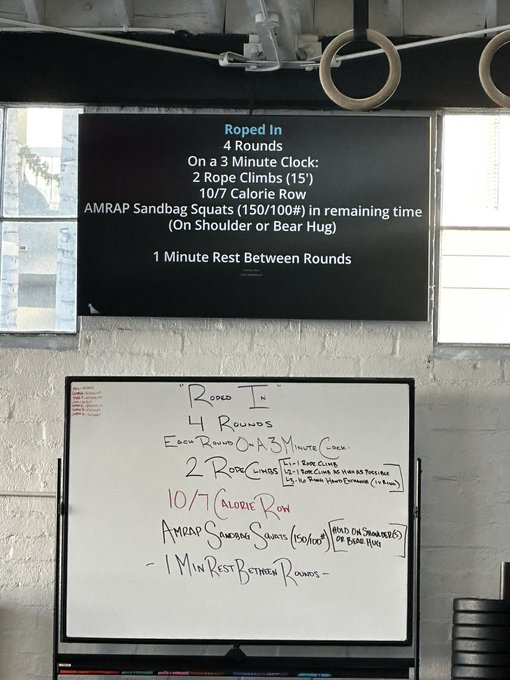 Roped In
4 Rounds
On a 3 Minute Clock:
2 Rope Climbs (15')
10/7 Calorie Row
AMRAP Sandbag Squats (150/100#) in remaining time
(On Shoulder or Bear Hug)
1 Minute Rest Between Rounds
"Roped In"
4 Rounds
Each Round On A 3 Minute Clock:
2 Rope Climbs
L1-1 Rope Climb
L2-1 Rope Climb as High as Possible
10/7 Calorie Row
AMRAP Sandbag Squats (150/100#)
Hold on Shoulder(s)
or Bear Hug
- 1 Min Rest Between Rounds -